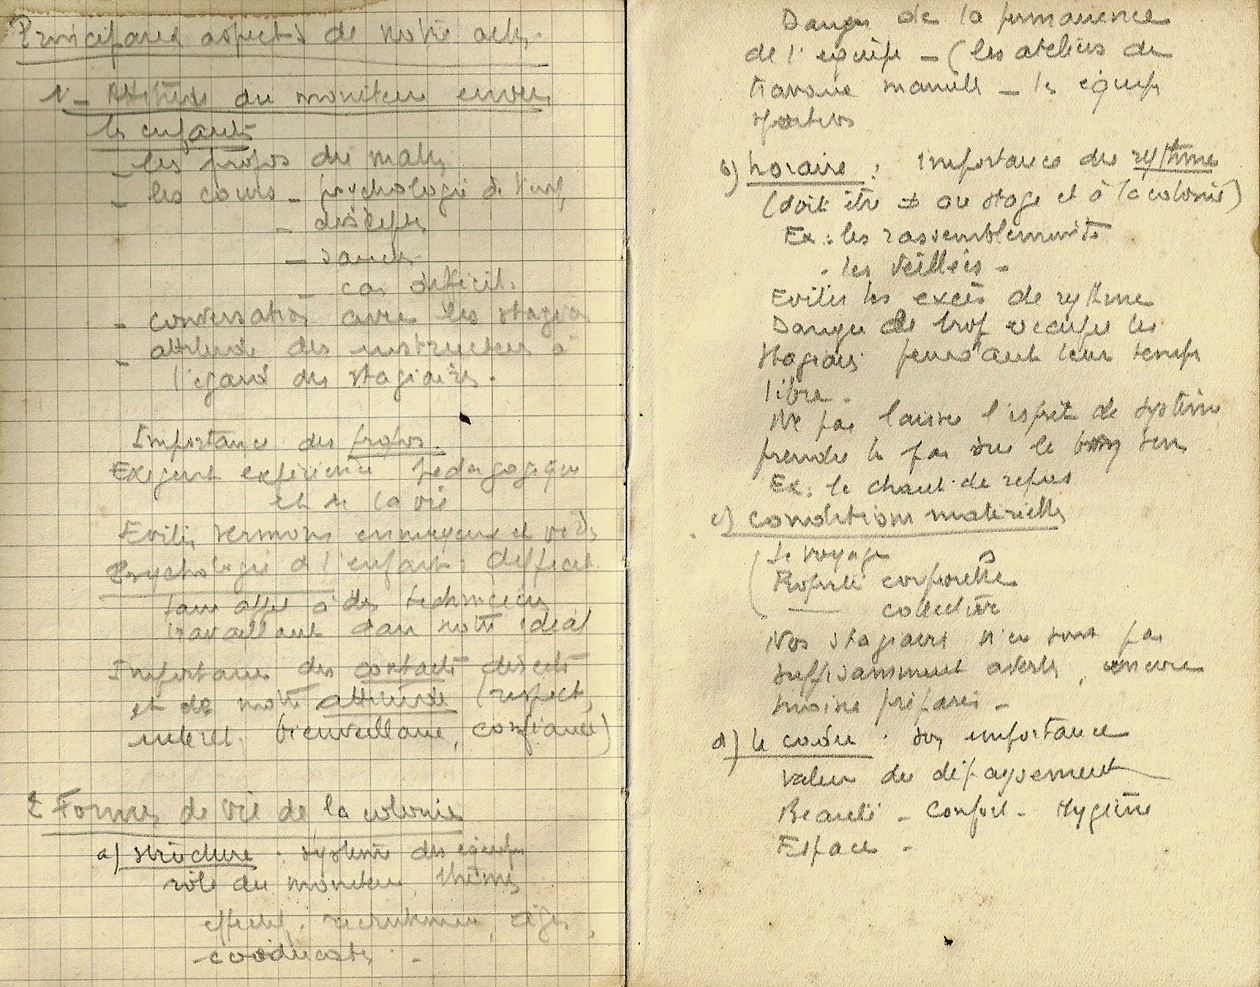 Principaux aspects de notre
1 - Attitude du moniteur envers
les enfants
- les propos du matin
- les cours - psychologie de l'enf
- discipl
-
- cas difficil.
- conversation avec les stagia
- attitude des instructeurs à
l'égard des stagiaires.
Importance des propos.
Exigent expérience pédagogique
et de la vie
Eviter sermons ennuyeux et
Psychologie de l'enfant : difficil
faire appel à des techniciens
travaillant dans notre idéal
Importance des contacts directs
et de notre attitude (respect,
intérêt. bienveillance, confiance)
2 Formes de vie de la colonie
a) structure. système des équipes
rôle du moniteur, thèmes
effectif. recrutement, âges,
coéducation. -
Danger de la permanence
de l'équipe - (les ateliers de
travaux manuels - les équipes
sportives
b) horaire : importance du rythme
(doit être ≠ au stage et à la colonie)
Ex : les rassemblements
. les veillées -
Eviter les excès de rythme
Danger de trop occuper les
stagiaires pendant leur temps
libre.
Ne pas laisser l'esprit de système
prendre le pas sur le bon sens
Ex : le chant de repas
c) conditions matérielles
(Le voyage
Propreté corporelle
— collective
Nos stagiaires n'en sont pas
suffisamment avertis, encore
moins préparés -
d) le cadre. son importance
valeur du dépaysement
Beauté - Confort - Hygiène
Espace -